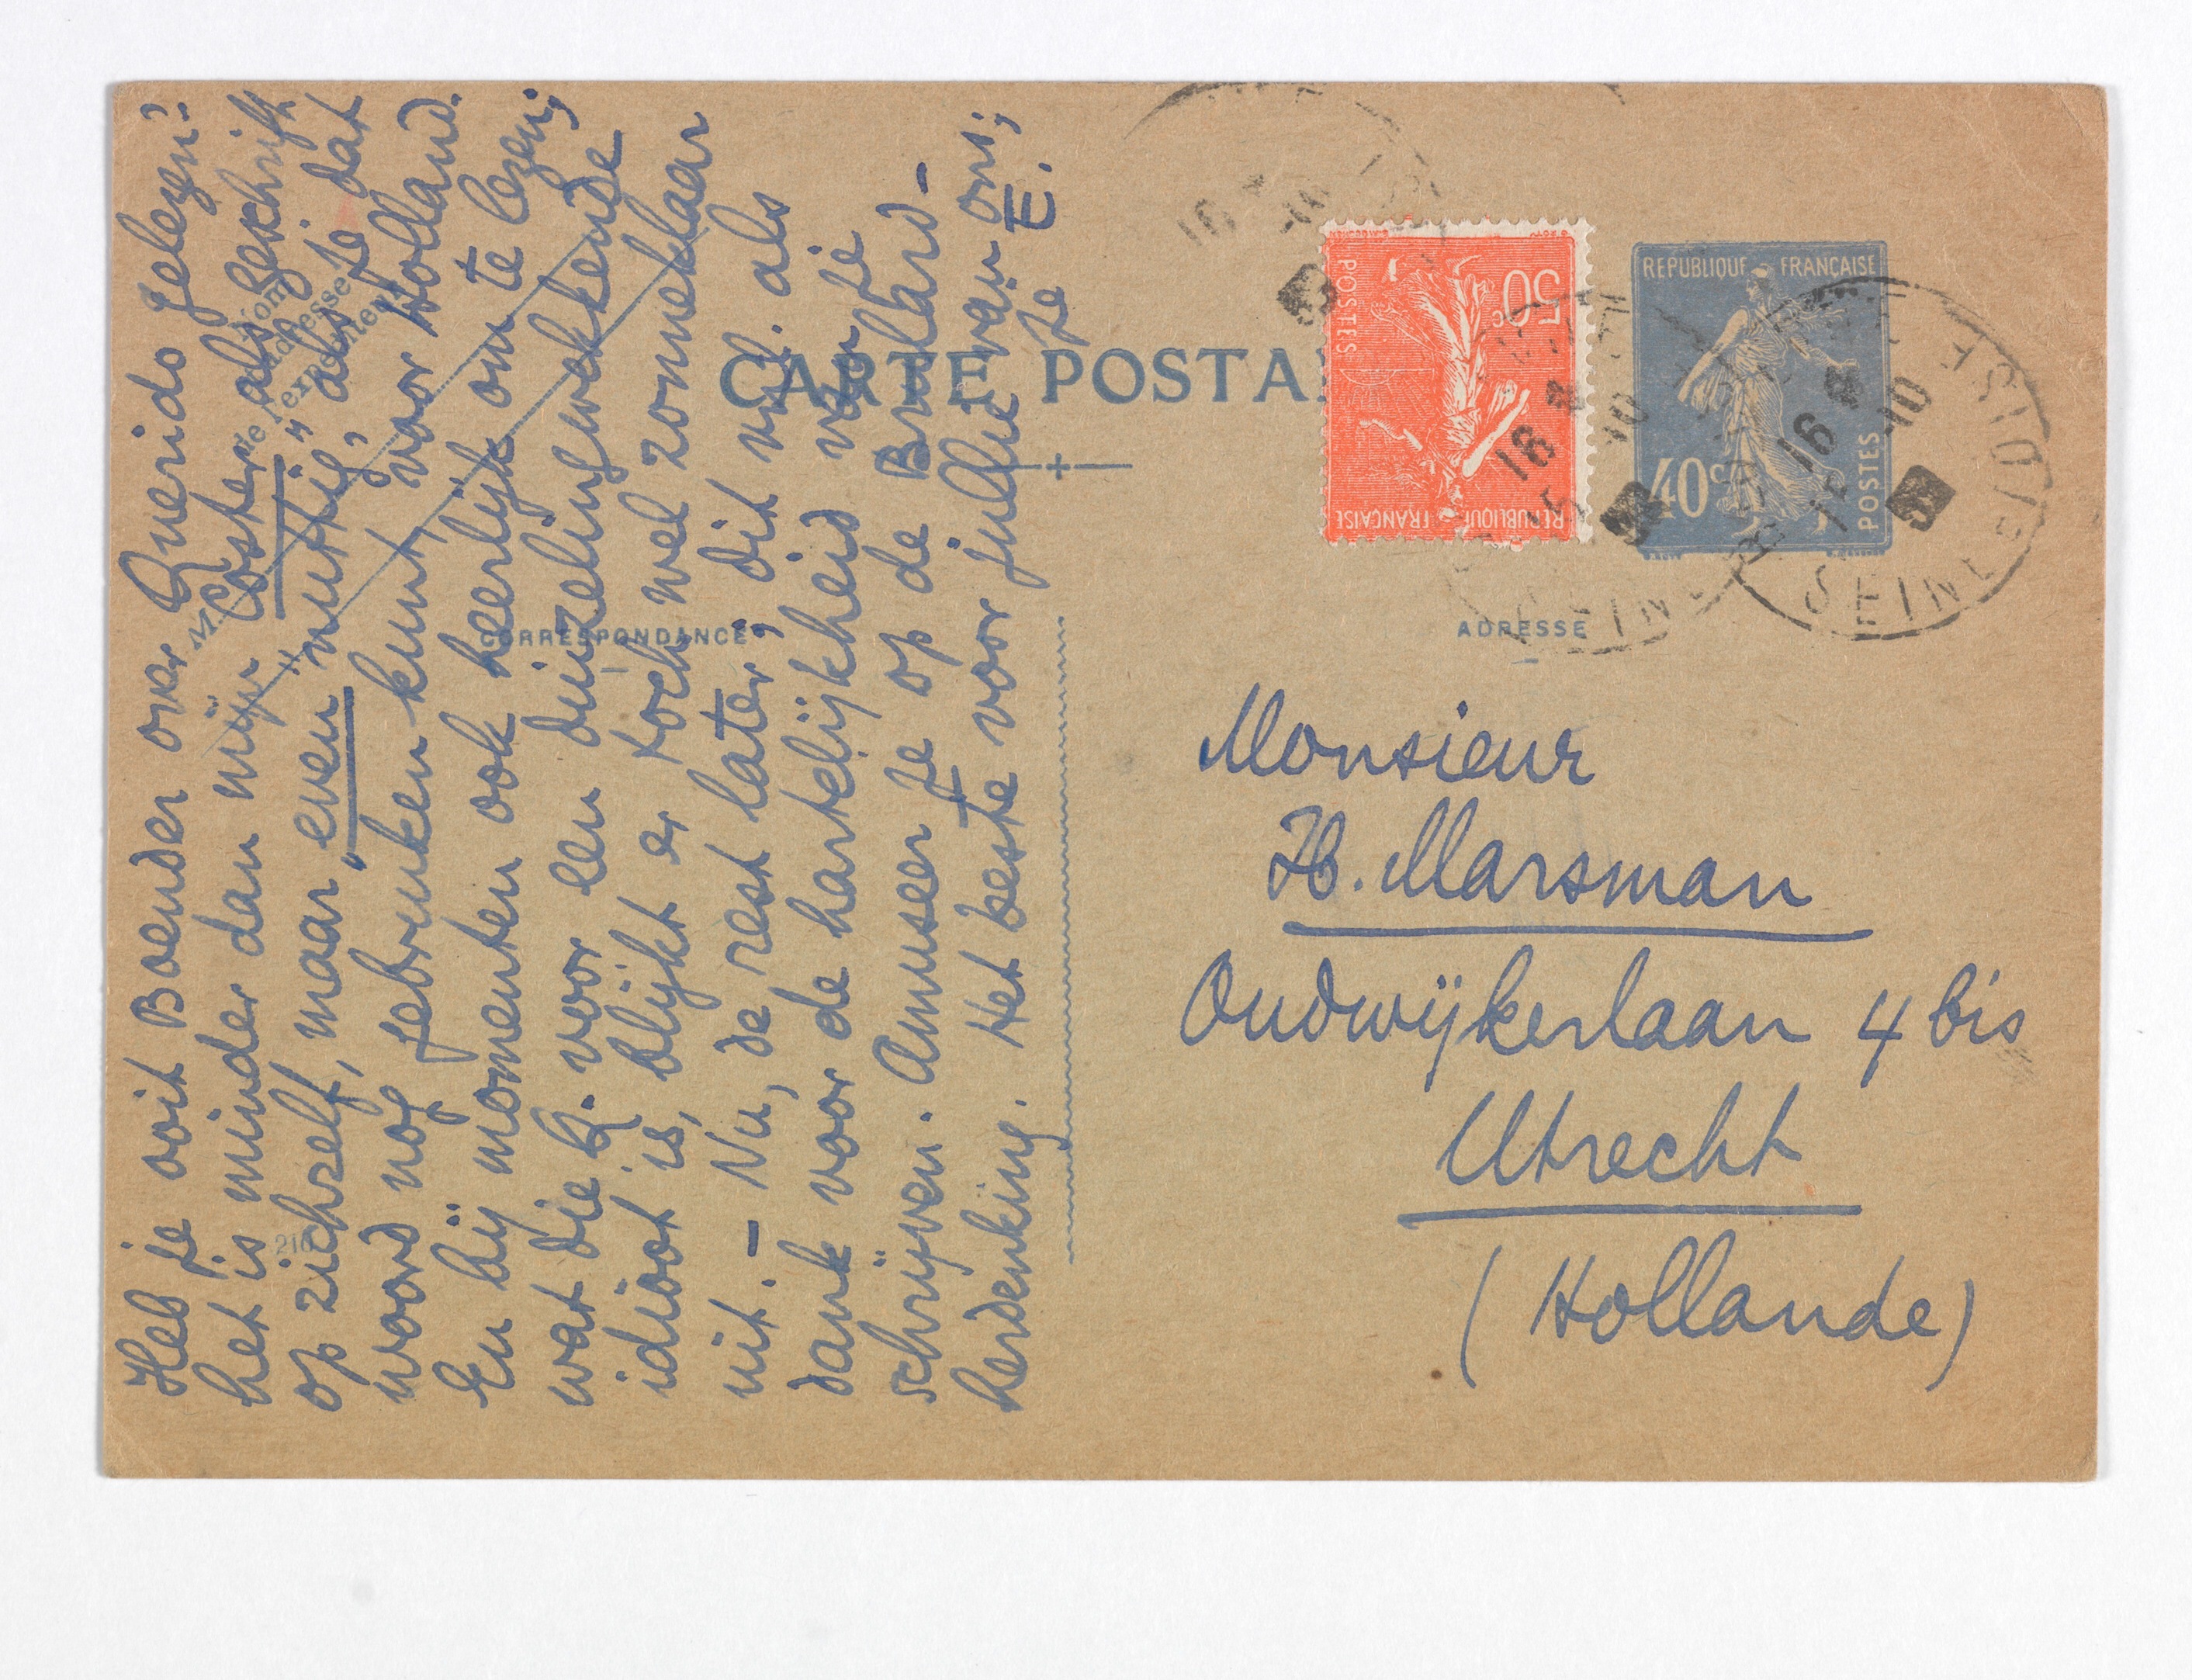 Heb je ooit Boender over Querido gelezen?
het is minder dan mijn Coster als geschrift
op zichzelf, maar „even „nuttig", als je dat
woord nog gebruiken kunt, voor Holland.
En bij momenten ook heerlijk om te lezen;
wat die Q. voor een duizelingwekkende
idioot is, blijkt er toch wel zonneklaar
uit. — Nu, de rest later; dit nl. als
dank voor de hartelijkheid van je
schrijven. Amuseer je op de Brulard-
herdenking. Het beste voor jullie van ons;
je E.
CARTE POSTA
CORRESPONDANCE
ADRESSE
Nom
adresse
de l'expéditeur
REPUBLIQUE FRANÇAISE
50c
POSTES
REPUBLIQUE FRANÇAISE
40c
POSTES
16
10
SEINE
16
10
SEINE & OISE
Monsieur
H. Marsman
Oudwijkerlaan 4 bis
Utrecht
(Hollande)